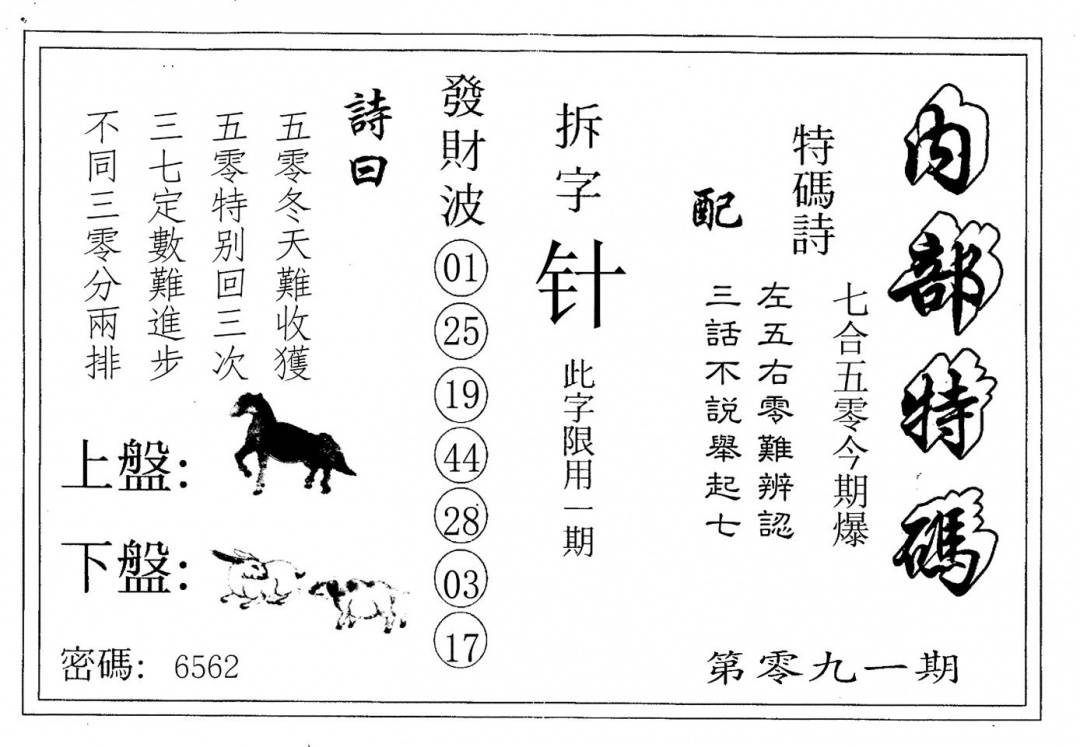 内部特碼
特碼詩
七合五零今期爆
配
左五右零難辨認
三話不説舉起七
第零九一期
拆字
针
此字限用一期
發財波
01
25
19
44
28
03
17
詩曰
五零冬天難收獲
五零特别回三次
三七定數難進步
不同三零分兩排
上盤：
下盤：
密碼：6562